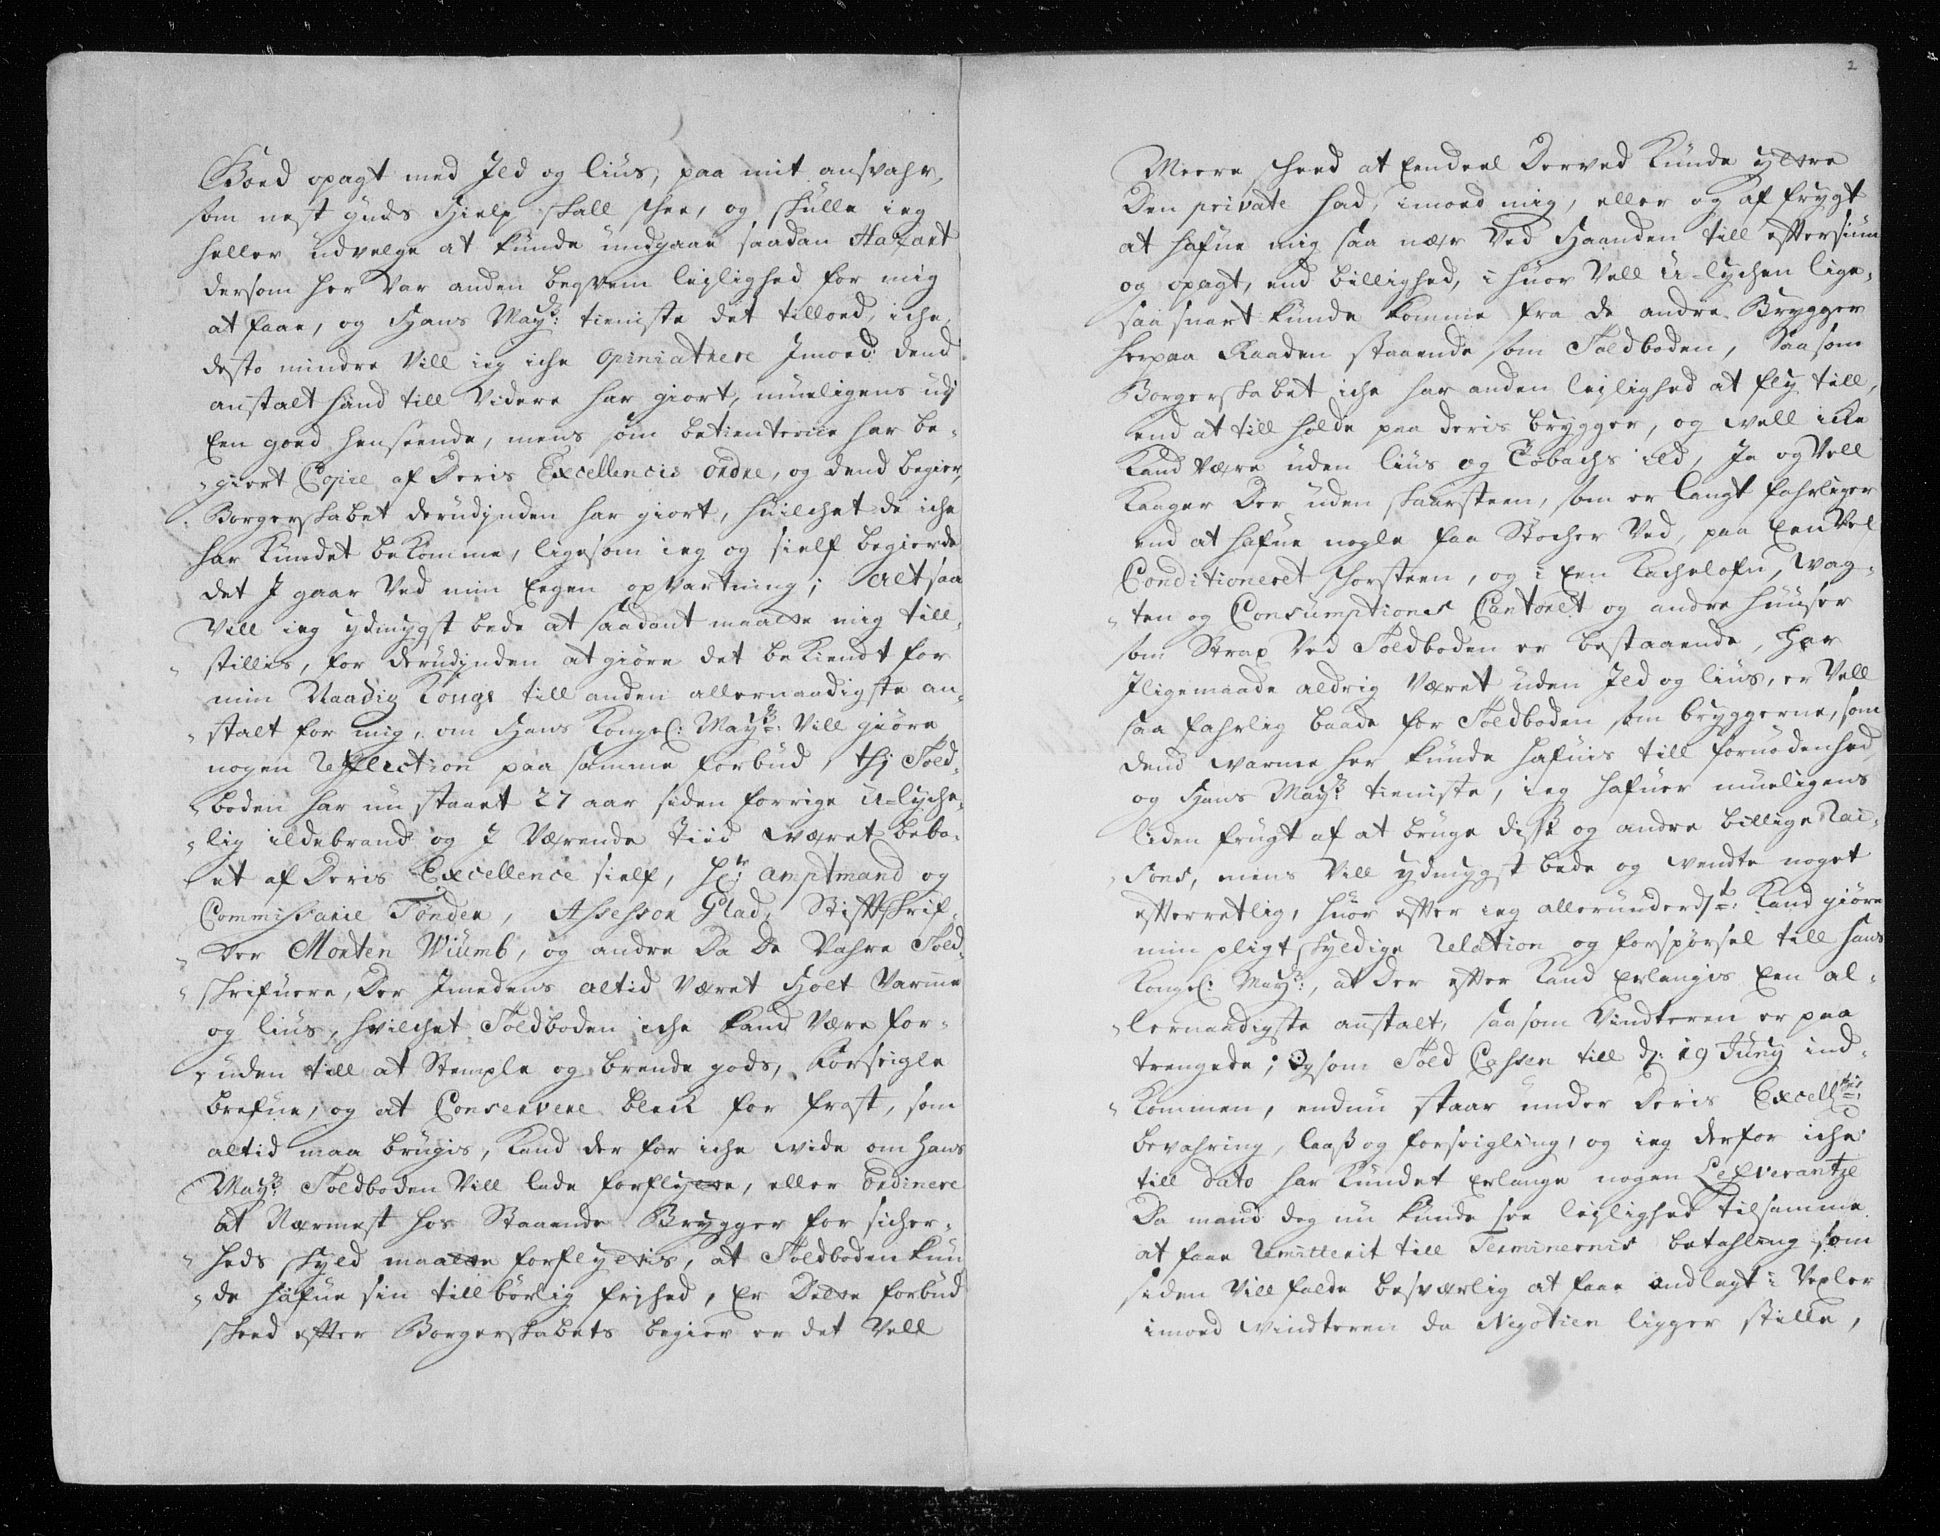 Goed opagt med Ild og lius, paa mit ansvahr,
som nest guds Hielp skall skee, og skulle ieg
heller udvelge at kunde undgaae saadan Hazart
dersom her var anden beqvem leylighed for mig
at faae, og Hans May: tieniste det tilloed, iche
desto mindre Vill ieg iche opiniathere Imoed dend
anstalt hand till Videre har giort, mueligens udj
Een goed henseende, mens som betienterne har be-
giert Copie af Deris Excellencis ordre, og dend begier,
Borgerskabet derudjnden har giort, huilchet de iche
har kundet bekomme, ligesom ieg og sielf begierde
det I gaar Ved min Eegen opvartning; Altsaa
Vill ieg ydmygst bede at saadant maatte mig till-
stillis, for derudjnden at giøre det bekiendt for
min Naadig Konge till anden allernaadigste an-
stalt for mig, om Hans Kongel: May: Vill giøre
nogen Reflection paa samme forbud, thj Told-
boden har nu staaet 27 aar siden forrige U-lyche-
lig ildebrand og I Værende Tiid været bebo-
et af Deris Excellence sielf, Hr: Amptmand og
Commissarie Tønder, Assessor Glad, Stiftskrif-
ver Morten Wiumb, og andre Da De Vahre Told-
skrifuere, Der Imedens altid Været Holt Varme
og lius, hvilchet Toldboden iche kand Være for-
uden till at Stemple og brende gods, Forseigle
brefue, og at Conservere bleck for frost, som
altid maa brugis, kand der for iche vide om Hans
May: Toldboden Vill lade forflytte, eller ordinere
at Nærmest hos Staaende Brygger for sicher-
heds skyld maatte forflyttis, at Toldboden kun-
de hafue sin tillbørlig frjhed, Er Dette forbud
skeed efter Borgerskabets begier er det Vell
2
Meere skeed at Eendeel Derved kunde yttre
Den private had, imoed mig, eller og af frygt
at hafue mig saa nær Ved Haanden till eftersiun
og opagt, end billighed, i huor Vell U-lychen lige-
saa snart kunde komme fra de andre Brygger
herpaa Raaden staaende som Toldboden, Saasom
Borgerskabet iche har anden leylighed at fly till,
end at till holde paa deris brygger, og vell icke
kand være uden lius og Tobachs ild, Ja og Vell
kaager Der uden skaarsteen, som er langt fahrliger
end at hafue nogle faa Stocher Ved, paa Een Vel
Conditioneret skorsteen, og i Een Kachelofn, Wag-
ten og Consumptions Cantoret og andre huuser
som Strax Ved Toldboden er bestaaende, Har
Iligemaade aldrig Været uden Ild og lius, er Vell
saa fahrlig baade for Toldboden som bryggerne, som
dend varme her kunde hafuis till fornødenhed
og Hans May: tieniste, ieg hafuer mueligens
liden frugt af at bruge diss og andre billige Rai-
sons, mens Vill ydmygst bede og vendte noget
efterretlig, huor efter ieg allerunderdste: kand giøre
min pligt skyldige Relation og forspørsel till Hans
Kongel: May:, at Der efter kand Erlangis Een al-
lernaadigste anstalt, saasom Vindteren er paa
trengede; Ogsom Told Cassen till d: 19 Junj ind-
kommen, endnu staar under Deris Excell:
bevahring, laaß og forseigling, og ieg derfor iche
till dato har kundet Erlange nogen Leffverantze
Da mand dog nu kunde see leylighed tilsamme
at faae Remitterit till Terminernis betahling som
siden Vill falde besværlig at faae andlagt i Vexler
imoed vindteren da Negotien ligger stille,